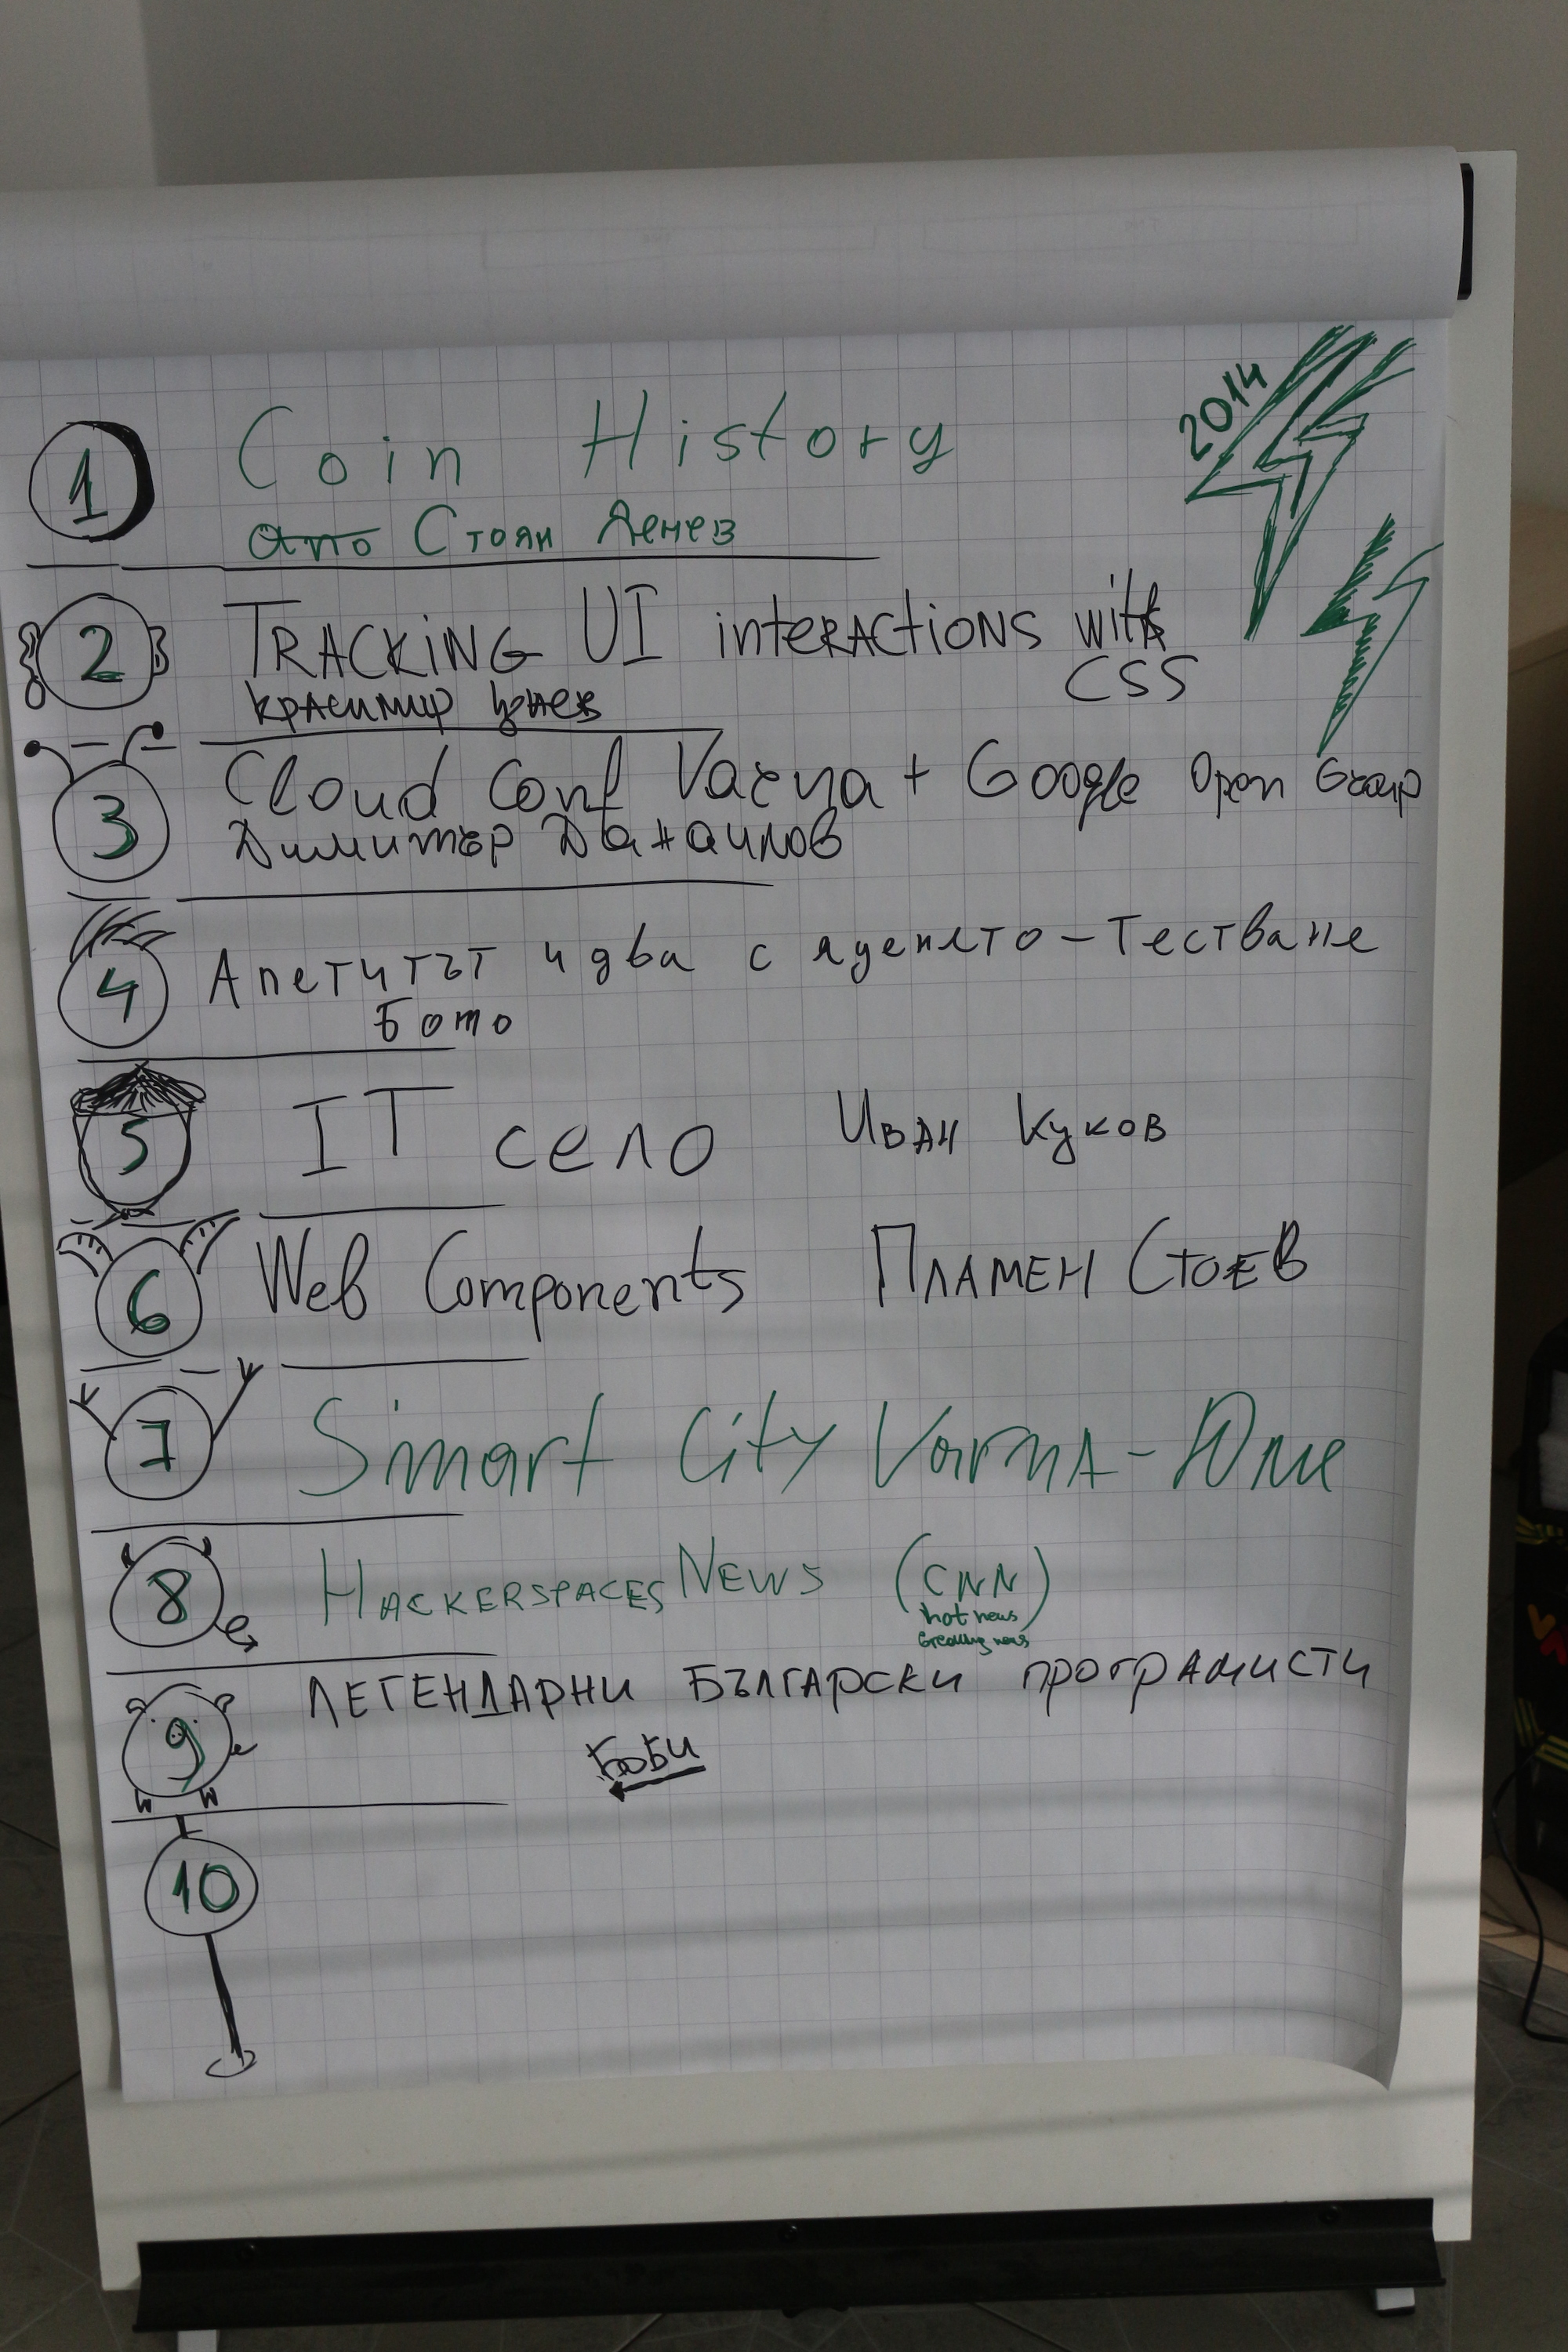 2014
1 Coin History
Стоян Денев
2 TRACKING UI interactions with
CSS
Красимир Цонев
3 Cloud Conf Varna + Google Open Group
Димитър Данаилов
4 Апетитът идва с яденето - Тестване
Бото
5 IT село Иван Куков
6 Web Components Пламен Стоев
7 Smart City Varna - Юлие
8 HACKERSPACES NEWS (CNN
hot news
breaking news)
9 ЛЕГЕНДАРНИ БЪЛГАРСКИ програмисти
Боби
10